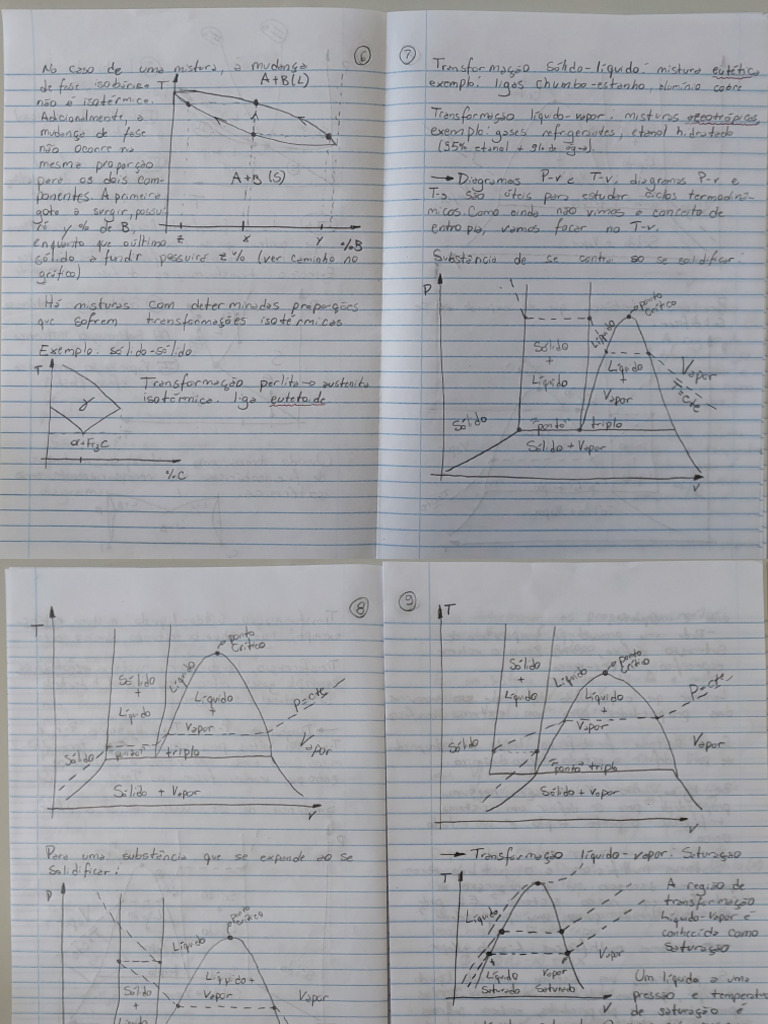 6
No caso de uma mistura, a mudança
de fase isobárica
não é isotérmica.
Adicionalmente, a
mudança de fase
não ocorre na
mesma proporção
para os dois com-
ponentes. A primeira
gota a surgir, possui
rá y % de B,
enquanto que o último
sólido a fundir possuirá z % (ver caminho no
gráfico)
T
A+B(L)
A+B(S)
z
x
y
%B
Há misturas com determinadas proporções
que sofrem transformações isotérmicas
Exemplo: sólido-sólido
T
γ
α+Fe3C
%C
Transformação perlita → austenita
isotérmica. liga eutetoide
7
Transformação Sólido-líquido: mistura eutética
exemplo: ligas chumbo-estanho, alumínio cobre
Transformação líquido-vapor. misturas azeotrópicas,
exemplo: gases refrigerantes, etanol hidratado
→ Diagramas P-v e T-v. diagramas P-v e
T-s são úteis para estudar ciclos termodinâ-
micos. Como ainda não vimos o conceito de
entropia, vamos focar no T-v.
Substância que se contrai ao se solidificar:
P
ponto
Crítico
Líquido
Sólido
+
Líquido
Líquido
+
Vapor
Vapor
T=cte
Sólido
"ponto" triplo
Sólido + Vapor
v
8
T
ponto
Crítico
Sólido
+
Líquido
Líquido
Líquido
+
Vapor
P=cte
Vapor
Sólido
"ponto" triplo
Sólido + Vapor
v
Para uma substância que se expande ao se
Solidificar:
P
ponto
Crítico
Líquido
Líquido+
Vapor
Vapor
Sólido
+
Líquido
9
T
Sólido
+
Líquido
Líquido
ponto
Crítico
Líquido
+
Vapor
P=cte
Sólido
Vapor
"ponto" triplo
Sólido + vapor
v
→ Transformação líquido-vapor: Saturação
T
Líquido
Vapor
Líquido
Saturado
Vapor
Saturado
v
A região de
transformação
Líquido-Vapor é
conhecida como
Saturação
Um líquido a uma
pressão e temperatura
de saturação é